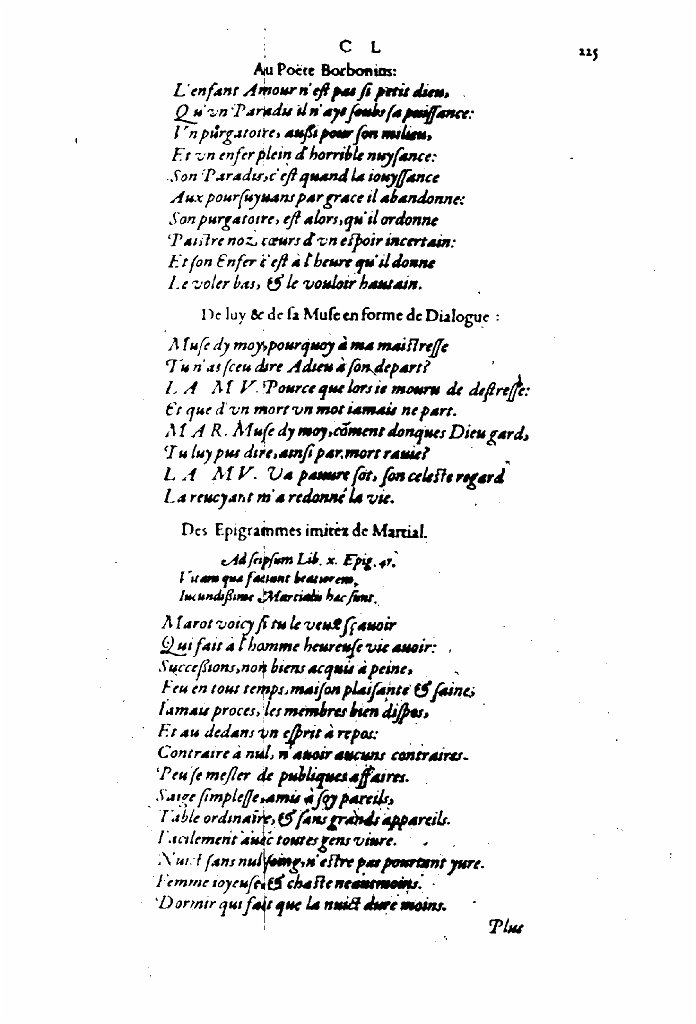 C L
225
Au Poëte Borbonius:
L'enfant Amour n'eſt pas ſi petit dieu,
Qu'vn Paradis il n'ayt ſoubs ſa puiſſance:
Vn purgatoire, auſsi pour ſon milieu,
Et vn enfer plein d'horrible nuyſance:
Son Paradis, c'eſt quand la iouyſſance
Aux pourſuyuans par grace il abandonne:
Son purgatoire, eſt alors, qu'il ordonne
Paiſtre noz cœurs d'vn eſpoir incertain:
Et ſon Enfer c'eſt à l'heure qu'il donne
Le voler bas, & le vouloir hautain.
De luy & de ſa Muſe en forme de Dialogue :
Muſe dy moy, pourquoy à ma maiſtreſſe
Tu n'as ſceu dire Adieu à ſon depart?
L A M V. Pource que lors ie mouru de deſtreſſe:
Et que d'vn mort vn mot iamais ne part.
M A R. Muſe dy moy, cõment donques Dieu gard,
Tu luy pus dire, ainſi par mort rauie?
L A M V. Va pauure ſot, ſon celeſte regard
La reuoyant m'a redonné la vie.
Des Epigrammes imitez de Martial.
Ad ſeipſum Lib. x. Epig. 47.
Vitam quæ faciant beatiorem,
Iucundißime Martialis hæc ſunt.
Marot voicy ſi tu le veux ſçauoir
Qui fait à l'homme heureuſe vie auoir:
Succeßions, non biens acquis à peine,
Feu en tous temps, maiſon plaiſante & ſaine,
Iamais proces, les membres bien diſpos,
Et au dedans vn eſprit à repos:
Contraire à nul, n'auoir aucuns contraires.
Peu ſe meſler de publiques affaires.
Saige ſimpleſſe, amis à ſoy pareils,
Table ordinaire, & ſans grands appareils.
Facilement auec toutes gens viure.
Nuict ſans nul ſoing, n'eſtre pas pourtant yure.
Femme ioyeuſe, & chaſte neantmoins.
Dormir qui fait que la nuict dure moins.
Plus